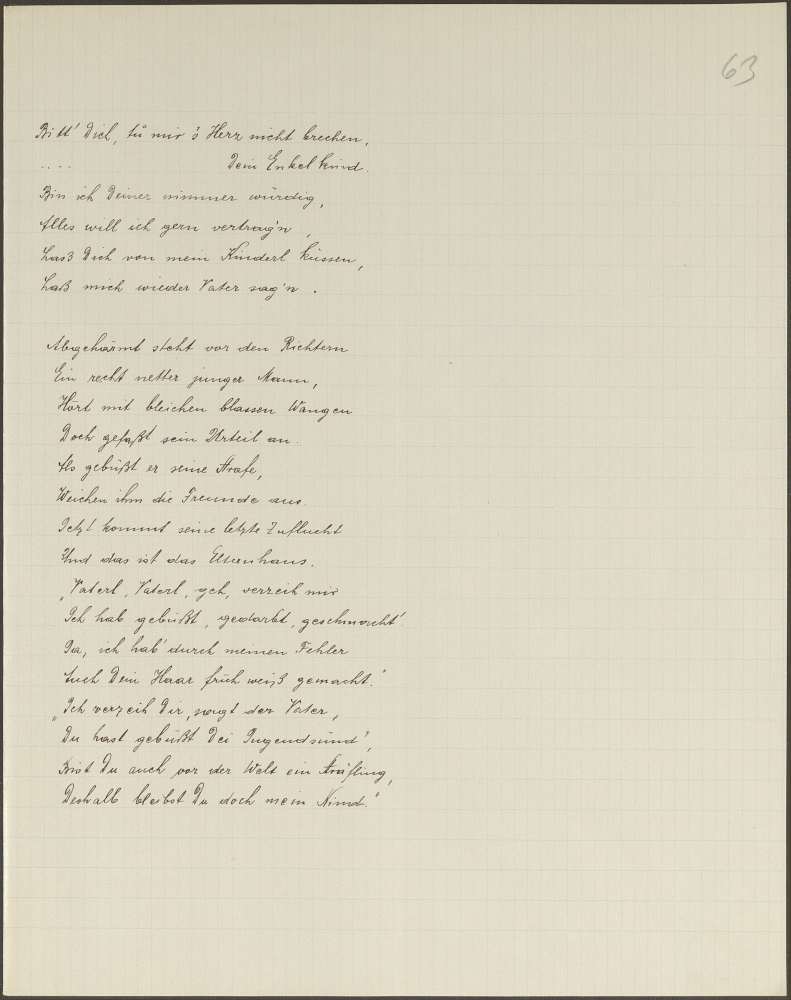 63
Bitt' Dich, tu mir 's Herz nicht brechen,
.... Dein Enkelkind.
Bin ich Deiner nimmer würdig,
Alles will ich gern vertrag'n,
Lass Dich von mein Kinderl küssen,
Laß mich wieder Vater sag'n.
Abgehärmt steht vor den Richtern
Ein recht netter junger Mann,
Hört mit bleichen blassen Wangen
Doch gefaßt sein Urteil an.
Als gebüßt er seine Strafe,
Weichen ihm die Freunde aus.
Jetzt kommt seine letzte Zuflucht
Und das ist das Elternhaus.
„Vaterl, Vaterl, geh, verzeih mir
Ich hab gebüßt, gedarbt, geschmacht'
Ja, ich hab' durch meinen Fehler
Auch Dein Haar früh weiß gemacht."
„Ich verzeih Dir, sagt der Vater,
Du hast gebüßt Dei Jugendsünd',
Bist Du auch vor der Welt ein Sträfling,
Deshalb bleibst Du doch mein Kind."